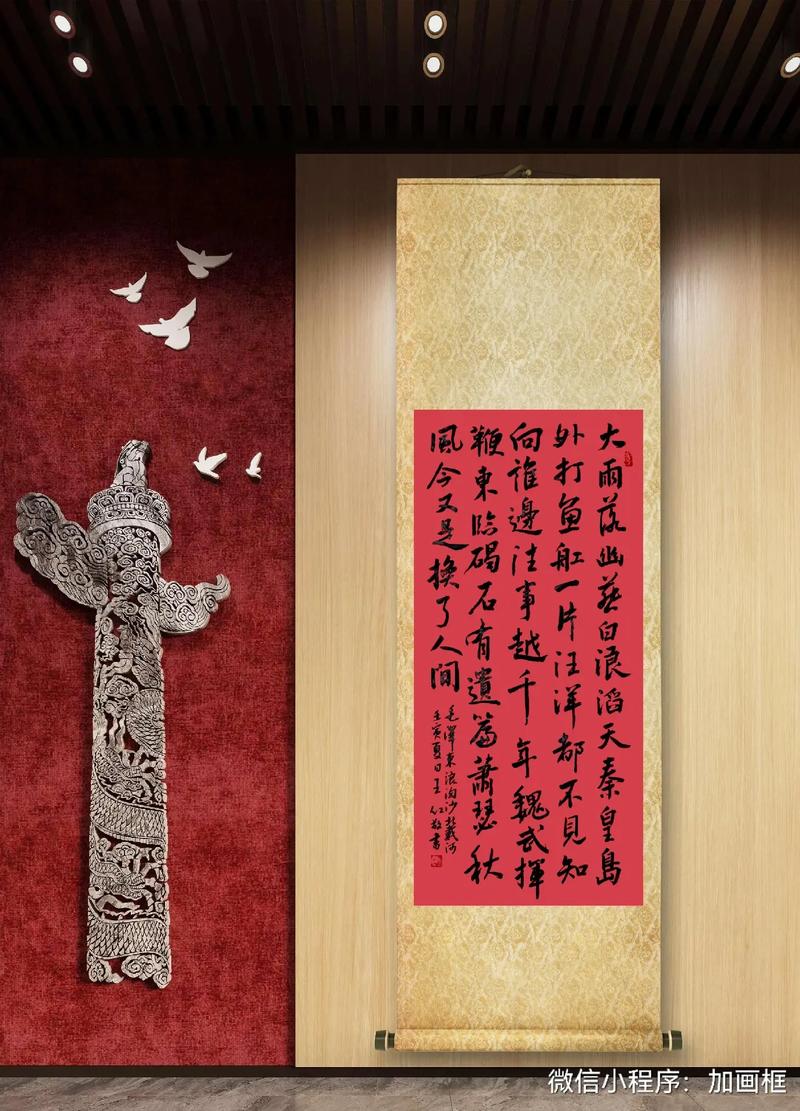 大雨落幽燕白浪滔天秦皇島
外打鱼舡一片汪洋都不見知
向誰邊往事越千年魏武揮
鞭東臨碣石有遺篇蕭瑟秋
風今又是換了人间
毛澤東浪淘沙北戴河
壬寅夏日王書
微信小程序：加画框